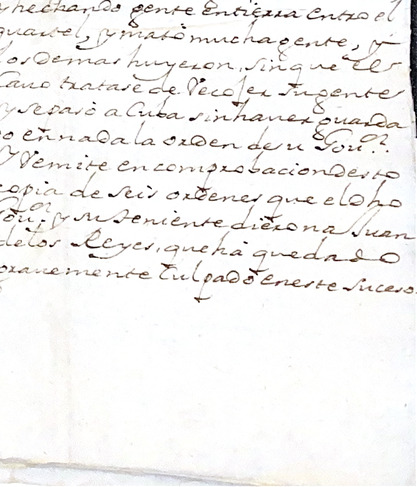 y hechando gente entierra entro el
quartel, y mató mucha gente, y
los demas huyeron, sin que el
Cavo tratase de Recojer su gente
y se pasó a Cuba sin haver guarda
do en nada la orden de su Gouor.
Y Remite en comprobacion desto
copia de seis ordenes que el dho
Gouor. y su teniente dieron a Juan
de los Reyes, que ha quedado
gravemente Culpado en este suceso.